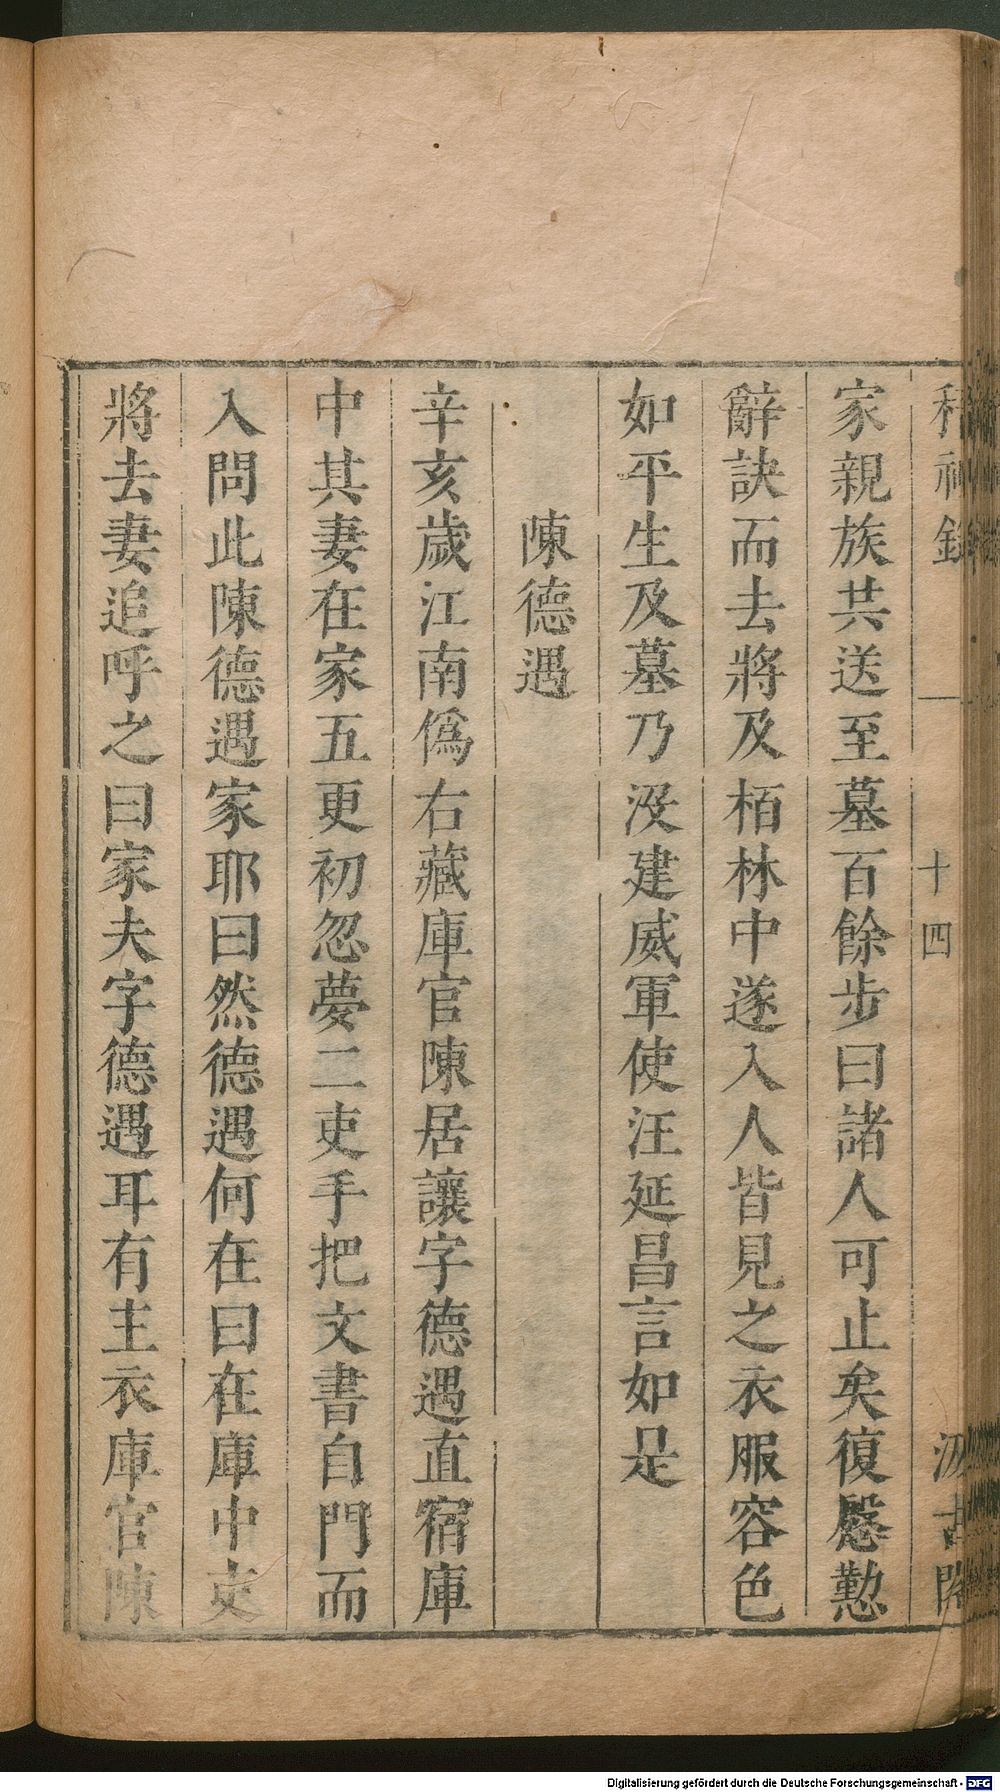 稽神錄 一 十四 汲古閣
家親族共送至墓百餘步曰諸人可止矣復慇懃
辭訣而去將及栢林中遂入人皆見之衣服容色
如平生及墓乃没建威軍使汪延昌言如是
陳德遇
辛亥歲江南僞右藏庫官陳居讓字德遇直宿庫
中其妻在家五更初忽夢二吏手把文書自門而
入問此陳德遇家耶曰然德遇何在曰在庫中吏
將去妻追呼之曰家夫字德遇耳有主衣庫官陳
Digitalisierung gefördert durch die Deutsche Forschungsgemeinschaft - DFG